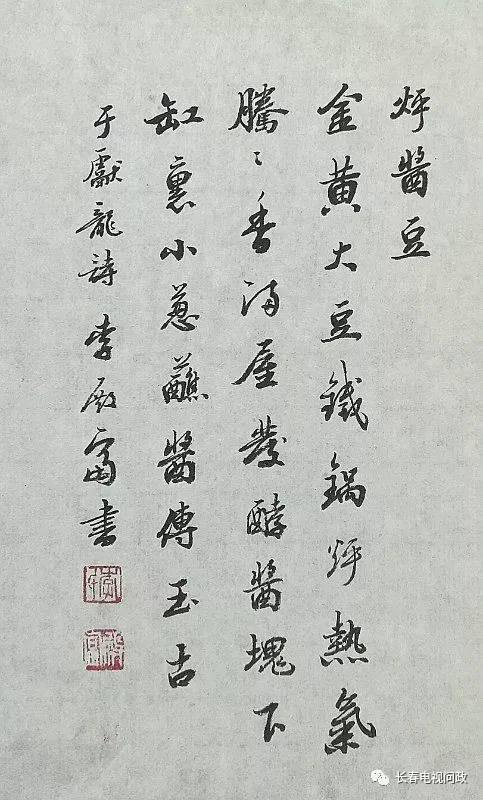 烀醬豆
金黄大豆鐵鍋烀熱氣
騰〻香满屋發酵醬塊下
缸裏小葱蘸醬傳玉古
于獻龍詩 李啟富書
长春电视问政